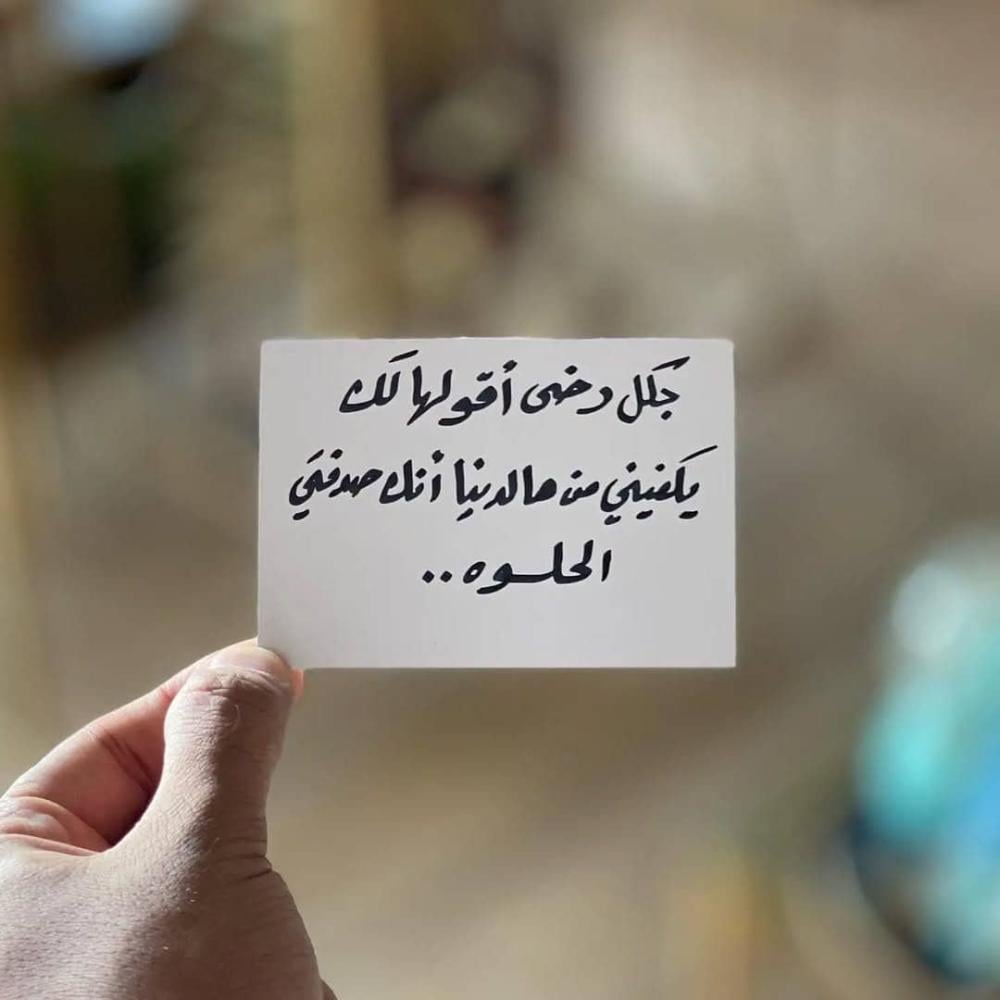 بكل رضى أقولها لَك
يكفيني من هالدنيا أنك صدفتي
الحلـوه..